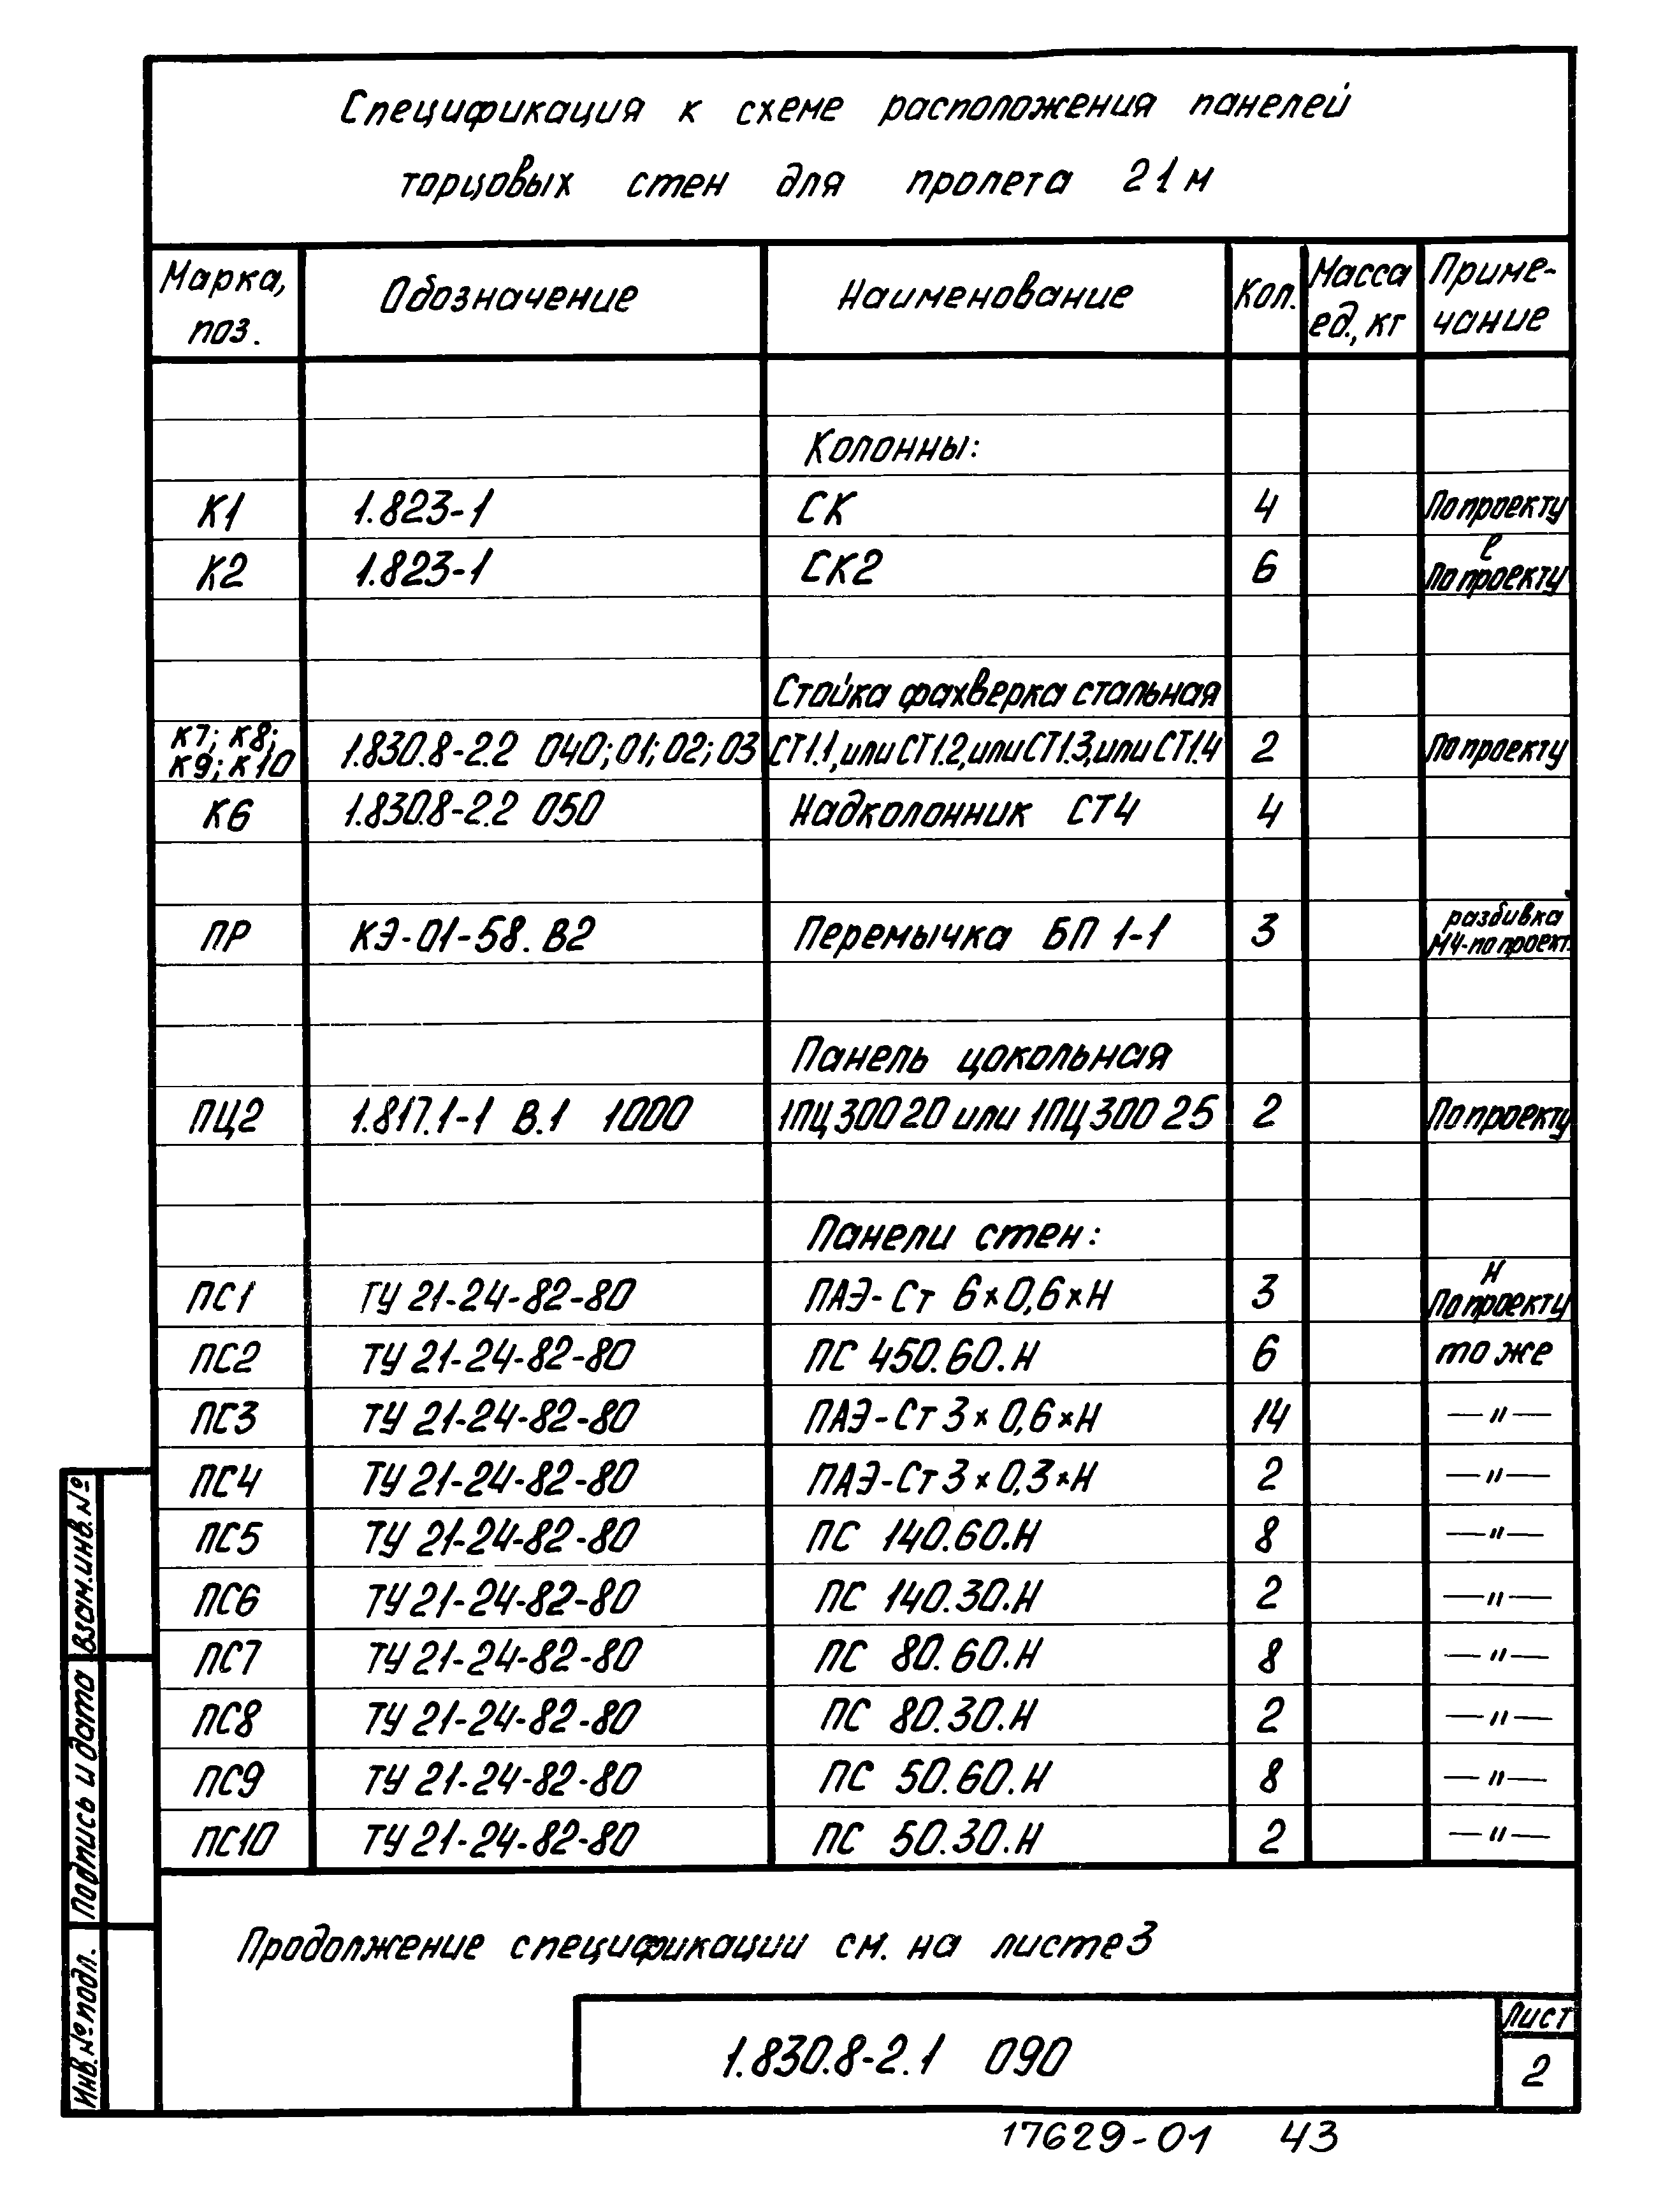 Спецификация к схеме расположения панелей
торцовых стен для пролета 21м
Марка, поз. Обозначение Наименование Кол. Масса ед., кг Приме-чание
Колонны:
К1 1.823-1 СК 4 По проекту
К2 1.823-1 СК2 6 е По проекту
Стойка фахверка стальная
К7; К8; К9; К10 1.830.8-2.2 040; 01; 02; 03 СТ1.1, или СТ1.2, или СТ1.3, или СТ1.4 2 По проекту
К6 1.830.8-2.2 050 Надколонник СТ4 4
ПР КЭ-01-58. В2 Перемычка БП 1-1 3 разбивка М4-по проект.
Панель цокольная
ПЦ2 1.817.1-1 В.1 1000 1ПЦ 300 20 или 1ПЦ 300 25 2 По проекту
Панели стен:
ПС1 ТУ 21-24-82-80 ПАЭ-Ст 6×0,6×Н 3 Н По проекту
ПС2 ТУ 21-24-82-80 ПС 450.60.Н 6 то же
ПС3 ТУ 21-24-82-80 ПАЭ-Ст 3×0,6×Н 14 —"—
ПС4 ТУ 21-24-82-80 ПАЭ-Ст 3×0,3×Н 2 —"—
ПС5 ТУ 21-24-82-80 ПС 140.60.Н 8 —"—
ПС6 ТУ 21-24-82-80 ПС 140.30.Н 2 —"—
ПС7 ТУ 21-24-82-80 ПС 80.60.Н 8 —"—
ПС8 ТУ 21-24-82-80 ПС 80.30.Н 2 —"—
ПС9 ТУ 21-24-82-80 ПС 50.60.Н 8 —"—
ПС10 ТУ 21-24-82-80 ПС 50.30.Н 2 —"—
Продолжение спецификации см. на листе 3
Взам.инв.№
Подпись и дата
Инв.№подл.
1.830.8-2.1 090
Лист
2
17629-01 43